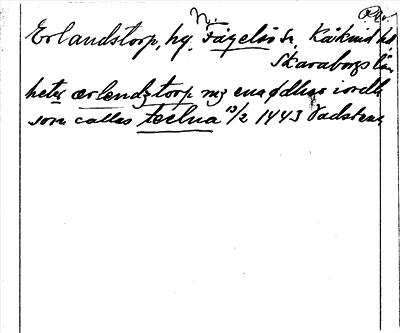 N. P.Ro.
Erlandstorp, hg. Fägelås s:n, Kåkinds hd
Skaraborgs län
heter ærlendztorp mz ena ødhes iordh
som callas teelna 13/2 1443 Vadstena